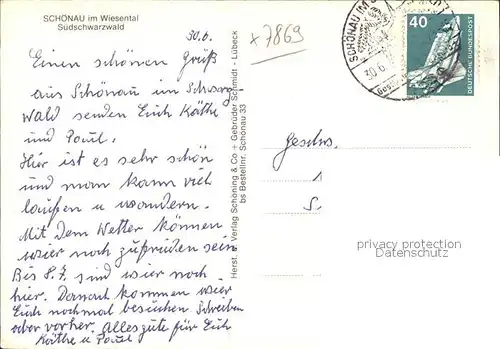 SCHÖNAU im Wiesental
Südschwarzwald
30.6.
x 7869
Einen schönen Gruß
aus Schönau im Schwarz
wald senden Euch Käthe
und Paul.
Hier ist es sehr schön
und man kann viel
laufen u wandern.
Mit dem Wetter können
wier noch zufrieden sein
Bis 8.7. sind wier noch
hier. Danach kommen wier
Euch nochmal besuchen. Schreiben
aber vorher. Alles gute für Euch
Käthe u Paul
Herst. u. Verlag Schöning & Co + Gebrüder Schmidt - Lübeck
bs Bestellnr. Schönau 33
SCHÖNAU IM
30.6.
40
DEUTSCHE BUNDESPOST
Geschw.
1
S.
privacy protection
Datenschutz